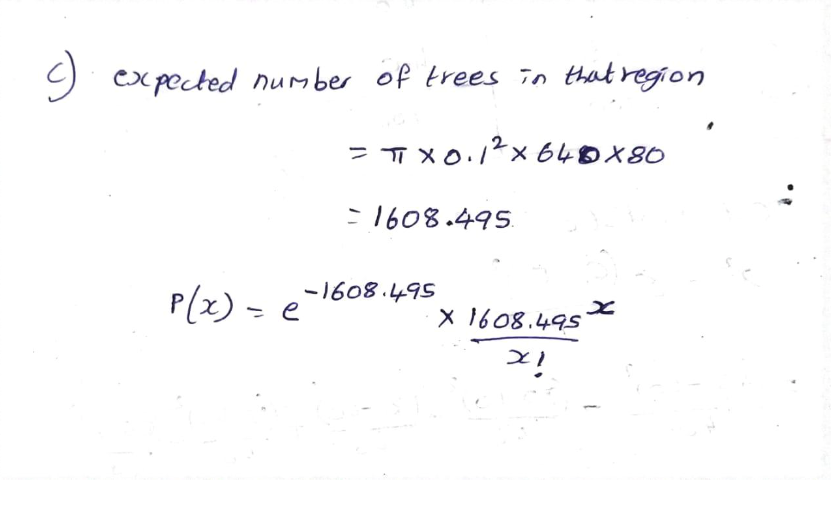 c) expected number of trees in that region
= π × 0.1² × 640 × 80
= 1608.495
P(x) = e^-1608.495 × 1608.495^x / x!